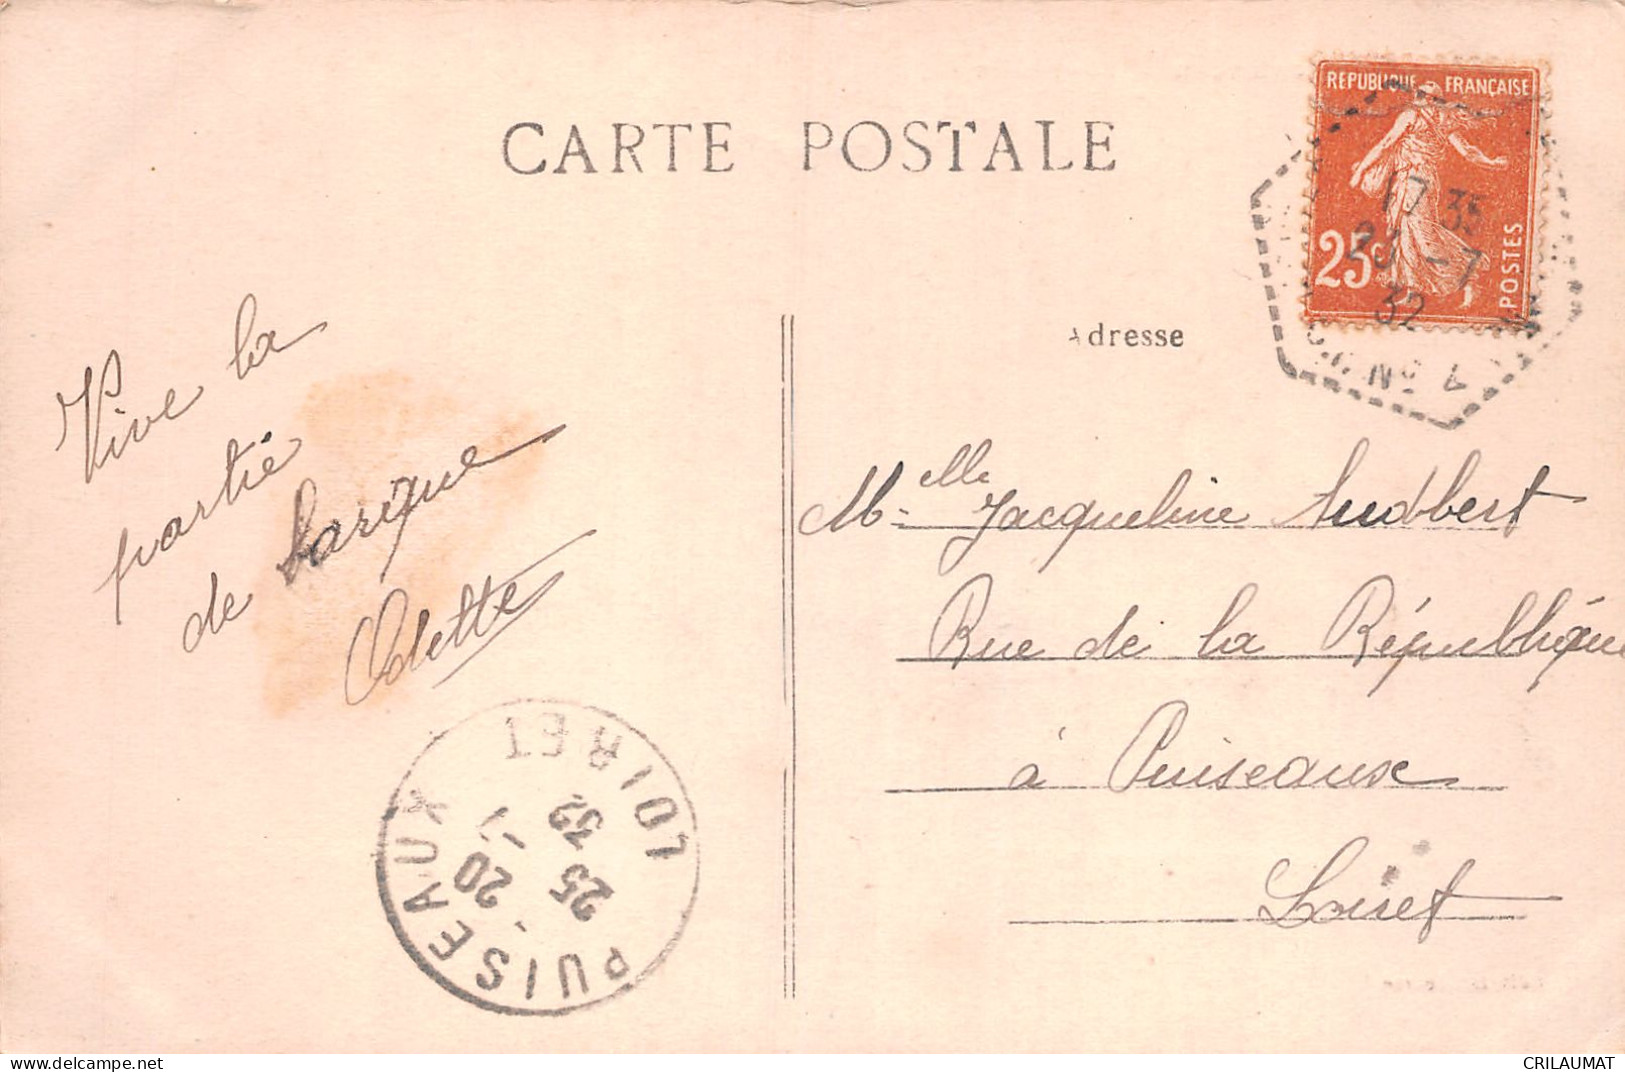 CARTE POSTALE
REPUBLIQUE FRANÇAISE
25c
POSTES
17 35
23 -7
32
Nº 4
Adresse
Vive la
partie
de barique
Odette
Melle Jacqueline Audbert
Rue de la République
à Puiseaux
Loiret
PUISEAUX
LOIRET
20
25 -7
32
delcampe.net
CRILAUMAT